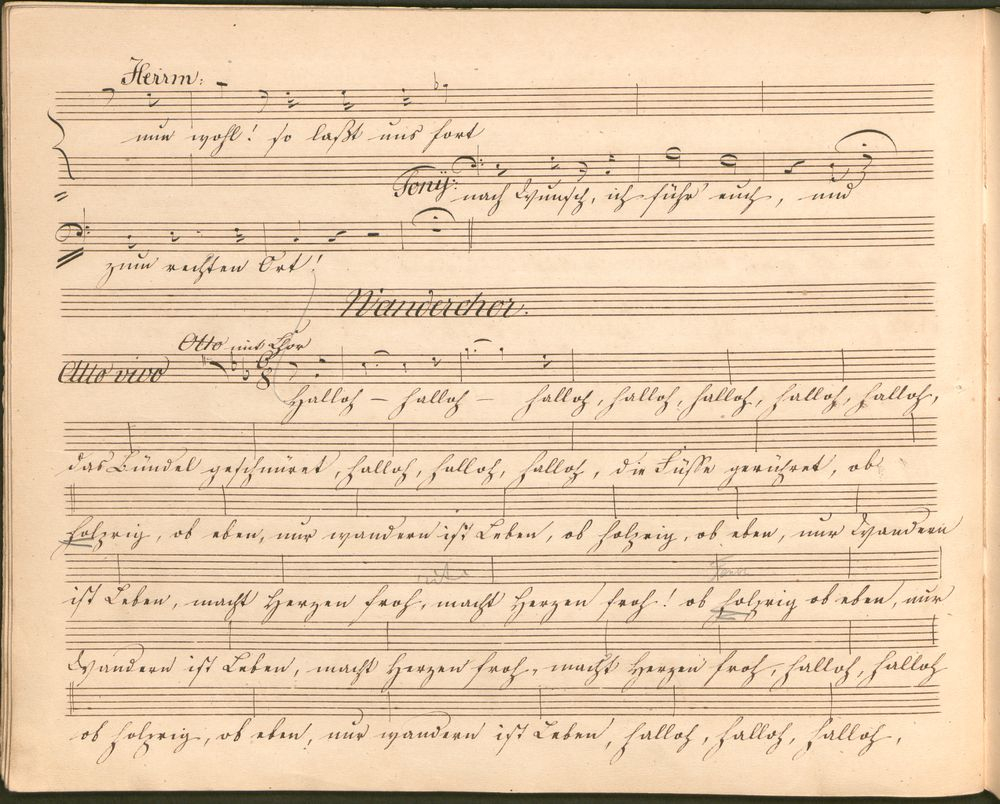 Herrm:
nun wohl! so laßt uns fort
Tonÿ: nach Wunsch, ich führ' euch, und
zum rechten Ort!
Wanderchor.
Otto mit Chor
Allo vivo
Halloh – halloh – halloh, halloh, halloh, halloh, halloh,
das Bündel geschnüret, halloh, halloh, halloh, die Füsse gerühret, ob
holprig, ob eben, nur wandern ist Leben, ob holprig, ob eben, nur Wandern
ist Leben, macht Herzen froh, macht Herzen froh! ob holprig ob eben, nur
Wandern ist Leben, macht Herzen froh, macht Herzen froh, halloh, halloh
ob holprig, ob eben, nur wandern ist Leben, halloh, halloh, halloh,